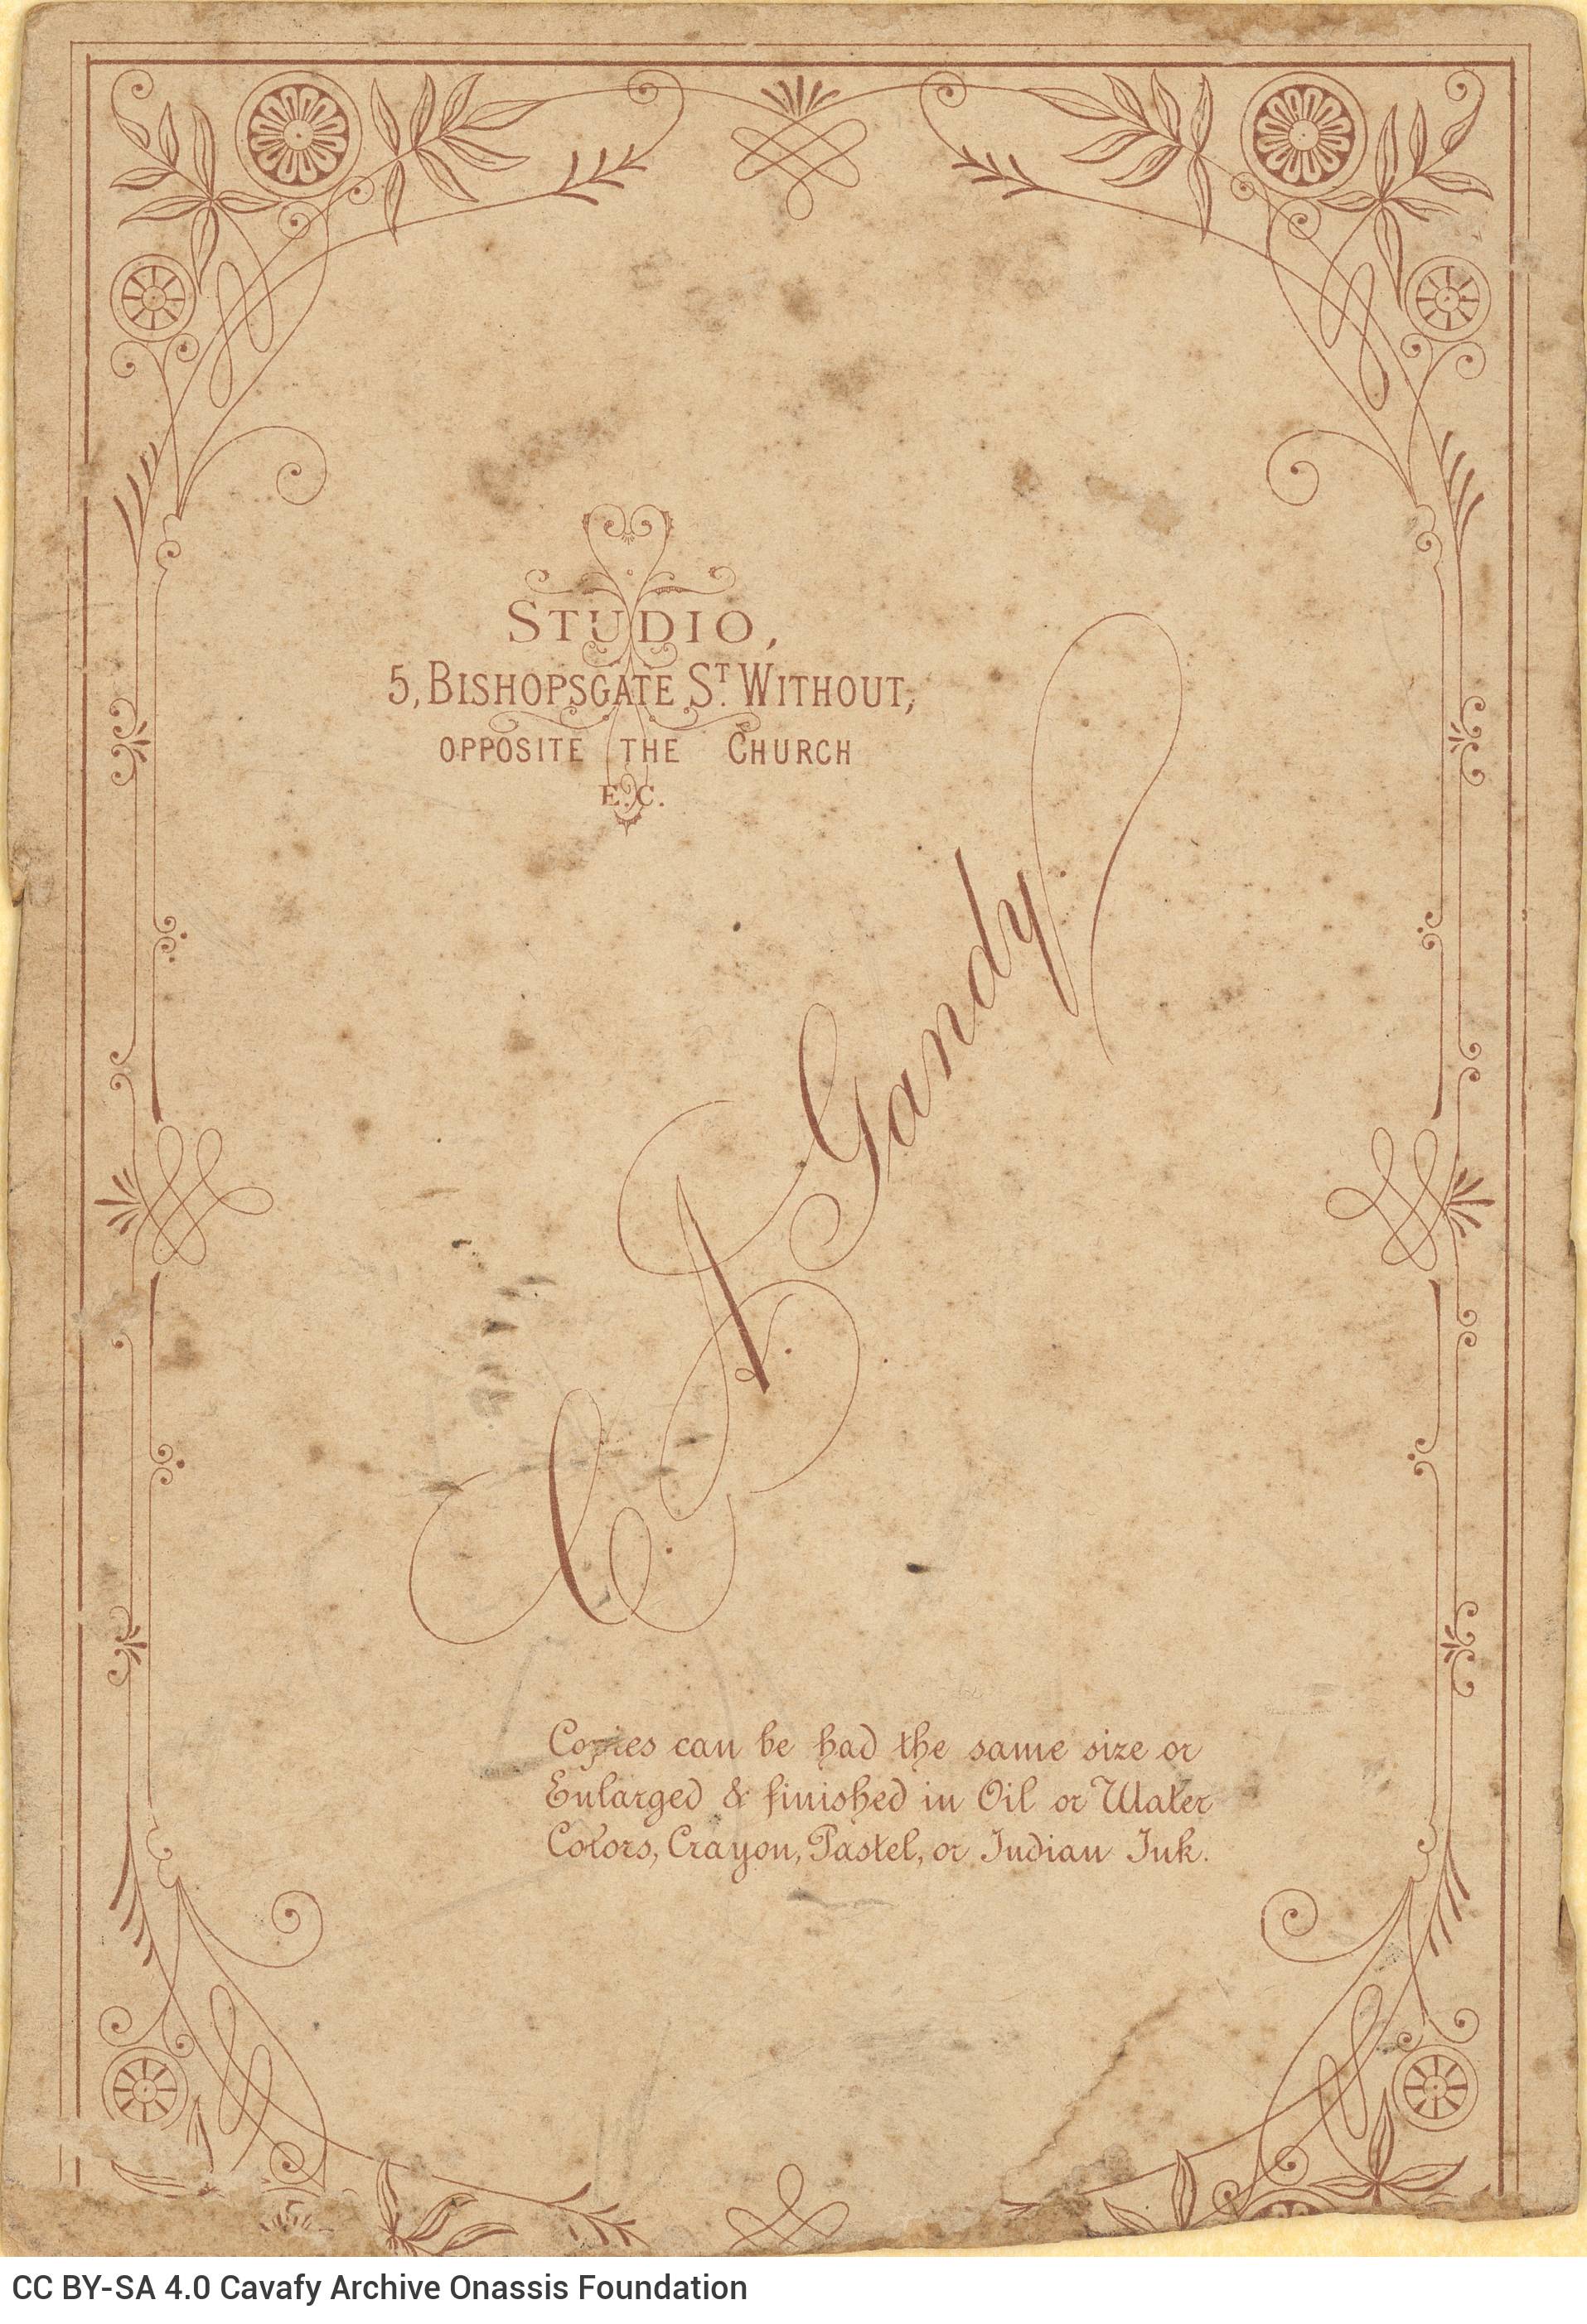 STUDIO,
5, BISHOPSGATE ST. WITHOUT,
OPPOSITE THE CHURCH
E.C.
Gandy
Copies can be had the same size or
Enlarged & finished in Oil or Water
Colors, Crayon, Pastel, or Indian Ink.
CC BY-SA 4.0 Cavafy Archive Onassis Foundation